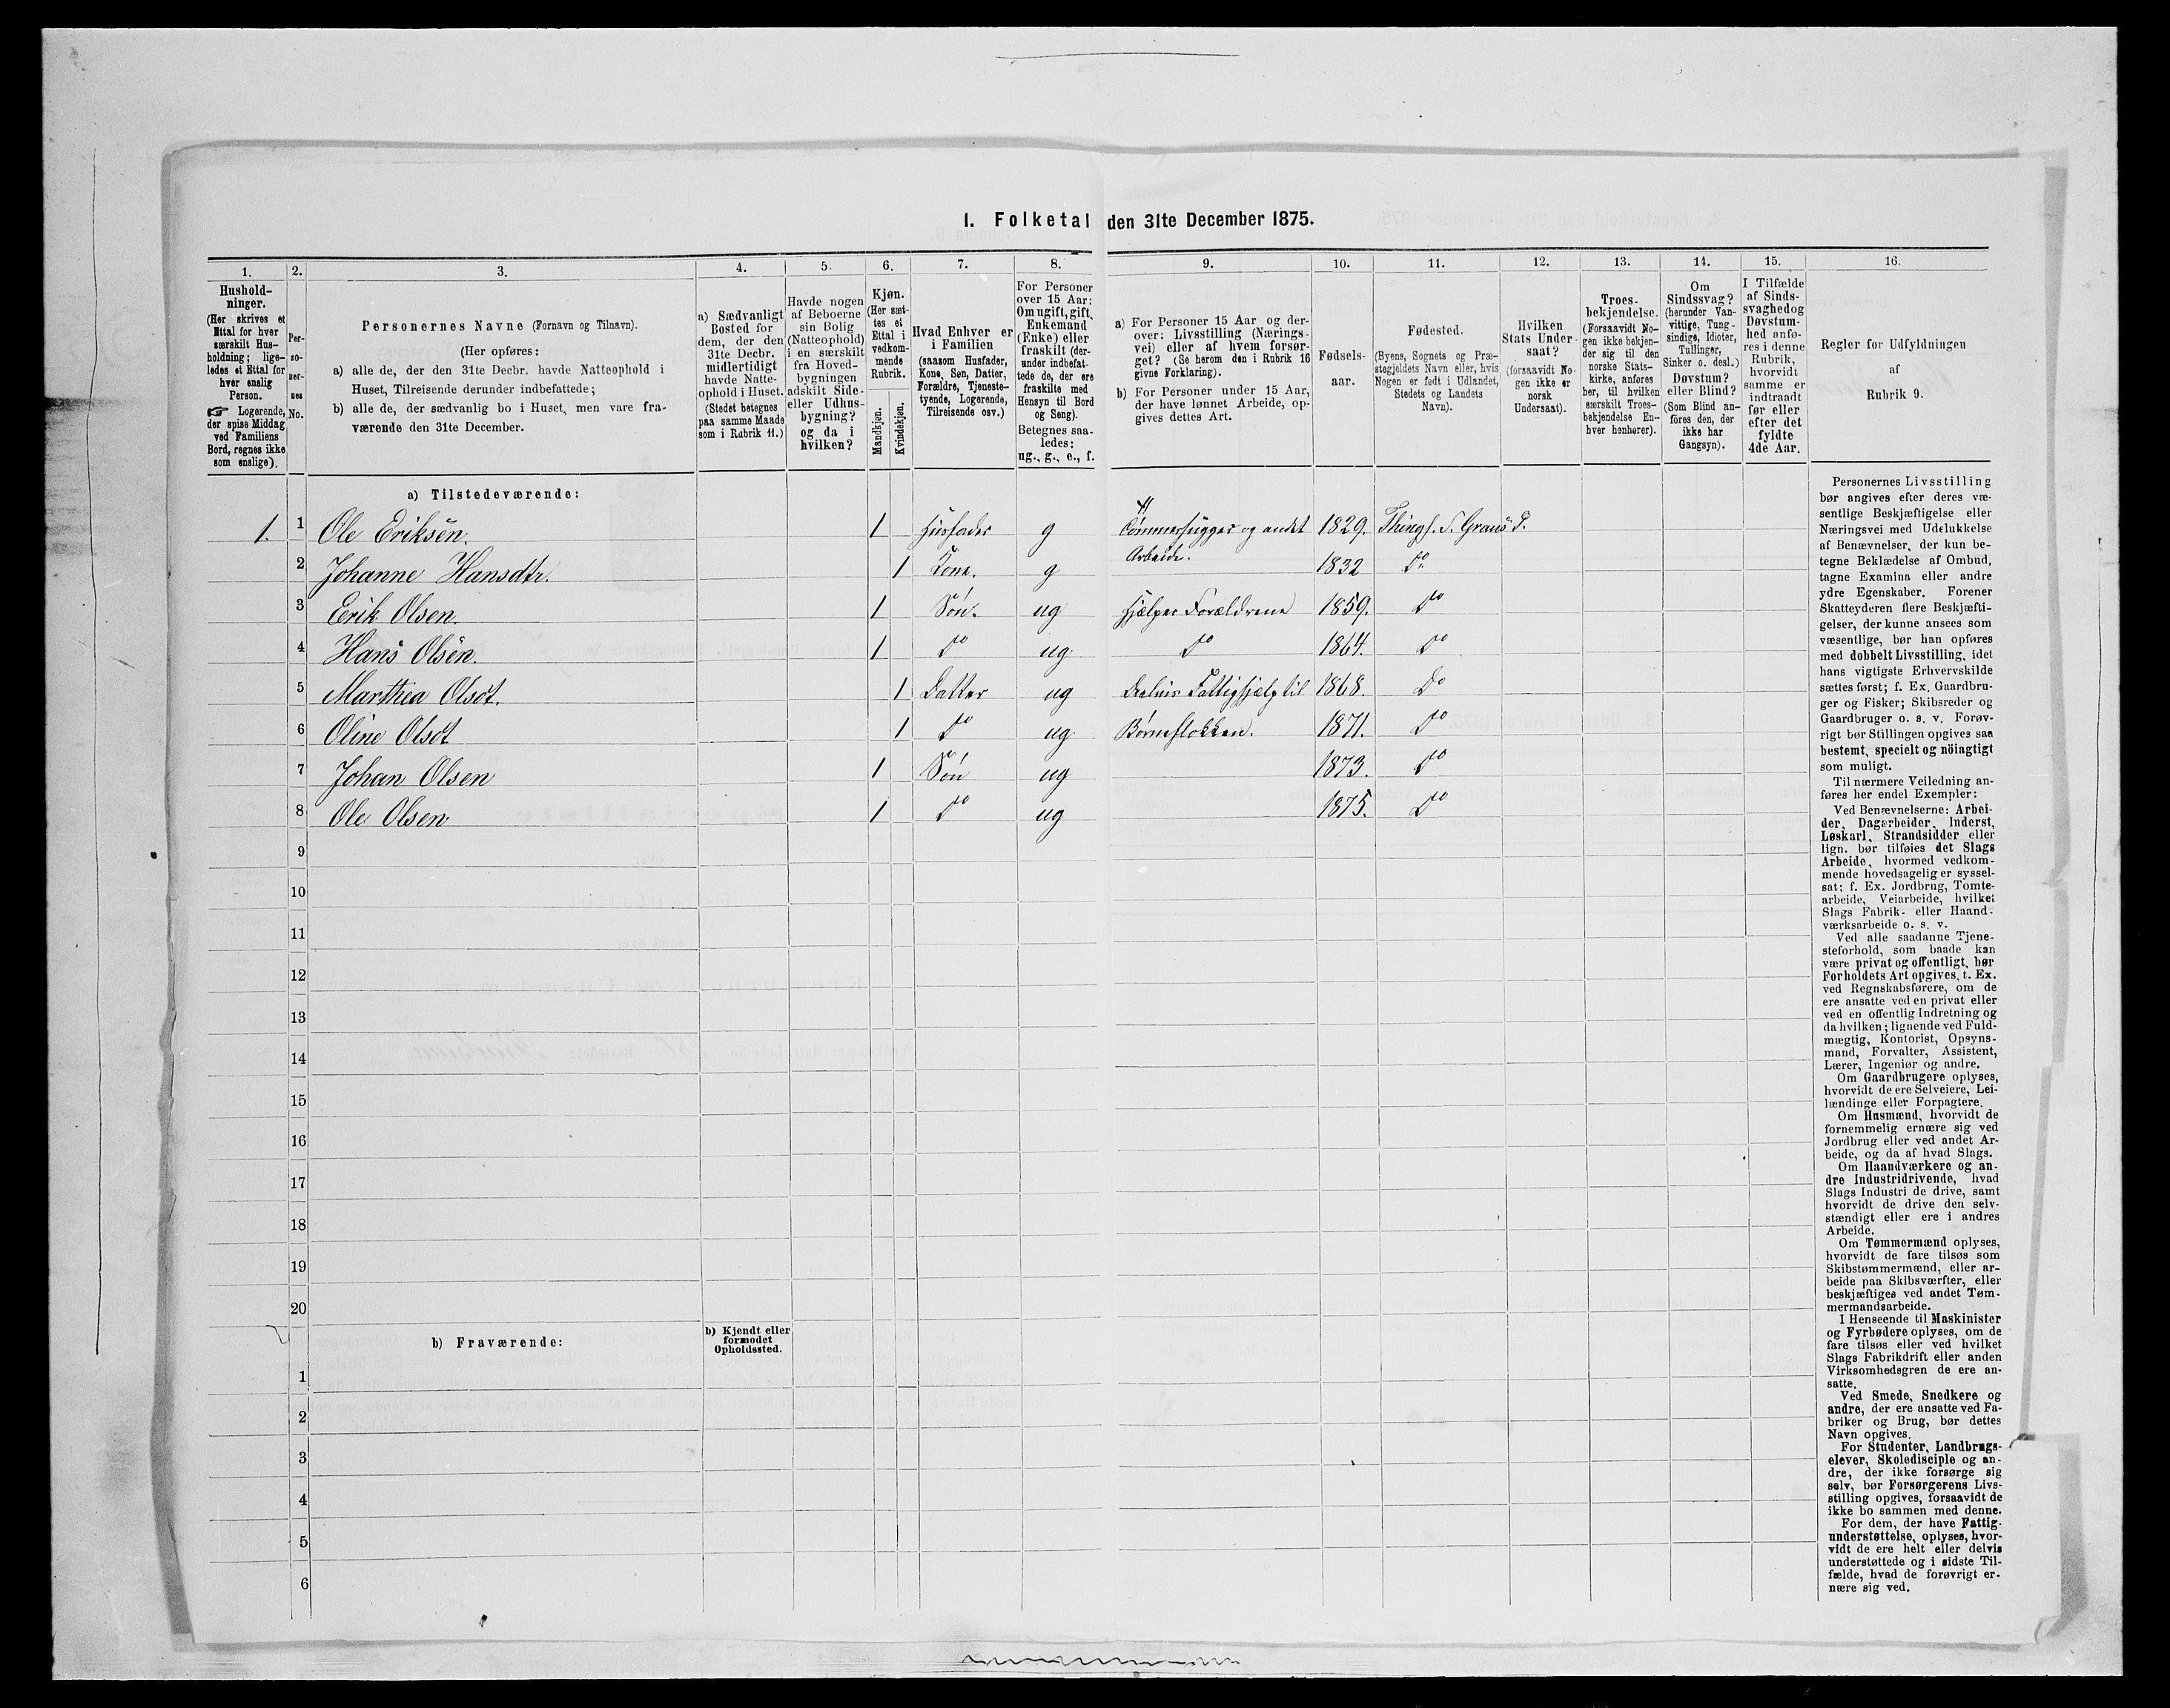 1. Folketal den 31te December 1875.
1. 2. 3. 4. 5. 6. 7. 8. 9. 10. 11. 12. 13. 14. 15. 16.
Hushold-
ninger.
(Her skrives et
Ettal for hver
særskilt Hus-
holdning; lige-
ledes et Ettal for
hver enslig
Person.
☞ Logerende,
der spise Middag
ved Familiens
Bord, regnes ikke
som enslige).
Per-
so-
ner-
nes
No.
Personernes Navne (Fornavn og Tilnavn).
(Her opføres:
a) alle de, der den 31te Decbr. havde Natteophold i
Huset, Tilreisende derunder indbefattede;
b) alle de, der sædvanlig bo i Huset, men vare fra-
værende den 31te December.
a) Sædvanligt
Bosted for
dem, der den
31te Decbr.
midlertidigt
havde Natte-
ophold i Huset.
(Stedet betegnes
paa samme Maade
som i Rubrik 11.)
Havde nogen
af Beboerne
sin Bolig
(Natteophold)
i en særskilt
fra Hoved-
bygningen
adskilt Side-
eller Udhus-
bygning?
og da i
hvilken?
Kjøn.
(Her sæt-
tes et
Ettal i
vedkom-
mende
Rubrik.
Mandkjøn.
Kvindekjøn.
Hvad Enhver er
i Familien
(saasom Husfader,
Kone, Søn, Datter,
Forældre, Tjeneste-
tyende, Logerende,
Tilreisende osv.)
For Personer
over 15 Aar:
Om ugift, gift,
Enkemand
(Enke) eller
fraskilt (der-
under indbefat-
tede de, der ere
fraskilte med
Hensyn til Bord
og Seng).
Betegnes saa-
ledes:
ug., g., e., f.
a) For Personer 15 Aar og der-
over: Livsstilling (Nærings-
vei) eller af hvem forsør-
get? (Se herom den i Rubrik 16
givne Forklaring).
b) For Personer under 15 Aar,
der have lønnet Arbeide, op-
gives dettes Art.
Fødsels-
aar.
Fødested.
(Byens, Sognets og Præ-
stegjeldets Navn eller, hvis
Nogen er født i Udlandet,
Stedets og Landets
Navn).
Hvilken
Stats Under-
saat?
(forsaavidt No-
gen ikke er
norsk
Undersaat).
Troes-
bekjendelse.
(Forsaavidt No-
gen ikke bekjen-
der sig til den
norske Stats-
kirke, anføres
her, til hvilken
særskilt Troes-
bekjendelse En-
hver henhører).
Om
Sindssvag?
(herunder Van-
vittige, Tung-
sindige, Idioter,
Tullinger,
Sinker o. desl.)
Døvstum?
eller Blind?
(Som Blind an-
föres den, der
ikke har
Gangsyn).
I Tilfælde
af Sinds-
svaghed og
Døvstum-
hed anfø-
res i denne
Rubrik,
hvorvidt
samme er
indtraadt
før eller
efter det
fyldte
4de Aar.
Regler for Udfyldningen
af
Rubrik 9.
a) Tilstedeværende:
1. 1 Ole Eriksen. 1 Husfader g Tømmerhugger og andet Arbeide. 1829. Thingf. S. Grans P.
2 Johanne Hansdtr. 1 Kone. g 1832 Do
3 Erik Olsen. 1 Søn. ug Hjælper Forældrene 1859. Do
4 Hans Olsen. 1 Do ug Do 1864. Do
5 Marthea Olsdt. 1 Datter ug Delvis Fattighjælp til 1868. Do
6 Oline Olsdt 1 Do ug Børneflokken. 1871. Do
7 Johan Olsen 1 Søn ug 1873. Do
8 Ole Olsen 1 Do ug 1875. Do
9
10
11
12
13
14
15
16
17
18
19
20
b) Fraværende:
b) Kjendt eller
formodet
Opholdssted.
1
2
3
4
5
6
Personernes Livsstilling
bør angives efter deres væ-
sentlige Beskjæftigelse eller
Næringsvei med Udelukkelse
af Benævnelser, der kun be-
tegne Beklædelse af Ombud,
tagne Examina eller andre
ydre Egenskaber. Forener
Skatteyderen flere Beskjæfti-
gelser, der kunne ansees som
væsentlige, bør han opføres
med dobbelt Livsstilling, idet
hans vigtigste Erhvervskilde
sættes først; f. Ex. Gaardbru-
ger og Fisker; Skibsreder og
Gaardbruger o. s. v. Forøv-
rigt bør Stillingen opgives saa
bestemt, specielt og nöiagtigt
som muligt.
Til nærmere Veiledning an-
føres her endel Exempler:
Ved Benævnelserne: Arbei-
der, Dagarbeider, Inderst,
Løskarl, Strandsidder eller
lign. bør tilføies det Slags
Arbeide, hvormed vedkom-
mende hovedsagelig er syssel-
sat; f. Ex. Jordbrug, Tomte-
arbeide, Veiarbeide, hvilket
Slags Fabrik- eller Haand-
værksarbeide o. s. v.
Ved alle saadanne Tjene-
steforhold, som baade kan
være privat og offentligt, bør
Forholdets Art opgives, t. Ex.
ved Regnskabsførere, om de
ere ansatte ved en privat eller
ved en offentlig Indretning og
da hvilken; lignende ved Fuld-
mægtig, Kontorist, Opsyns-
mand, Forvalter, Assistent,
Lærer, Ingeniør og andre.
Om Gaardbrugere oplyses,
hvorvidt de ere Selveiere, Lei-
lændinge eller Forpagtere.
Om Husmænd, hvorvidt de
fornemmelig ernære sig ved
Jordbrug eller ved andet Ar-
beide, og da af hvad Slags.
Om Haandværkere og an-
dre Industridrivende, hvad
Slags Industri de drive, samt
hvorvidt de drive den selv-
stændigt eller ere i andres
Arbeide.
Om Tømmermænd oplyses,
hvorvidt de fare tilsøs som
Skibstømmermænd, eller ar-
beide paa Skibsværfter, eller
beskjæftiges ved andet Tøm-
mermandsarbeide.
I Henseende til Maskinister
og Fyrbødere oplyses, om de
fare tilsøs eller ved hvilket
Slags Fabrikdrift eller anden
Virksomhedsgren de ere an-
satte.
Ved Smede, Snedkere og
andre, der ere ansatte ved Fa-
briker og Brug, bør dettes
Navn opgives.
For Studenter, Landbrugs-
elever, Skoledisciple og an-
dre, der ikke forsørge sig
selv, bør Forsørgerens Livs-
stilling opgives, forsaavidt de
ikke bo sammen med denne.
For dem, der have Fattig-
understøttelse, oplyses, hvor-
vidt de ere helt eller delvis
understøttede og i sidste Til-
fælde, hvad de forøvrigt er-
nære sig ved.